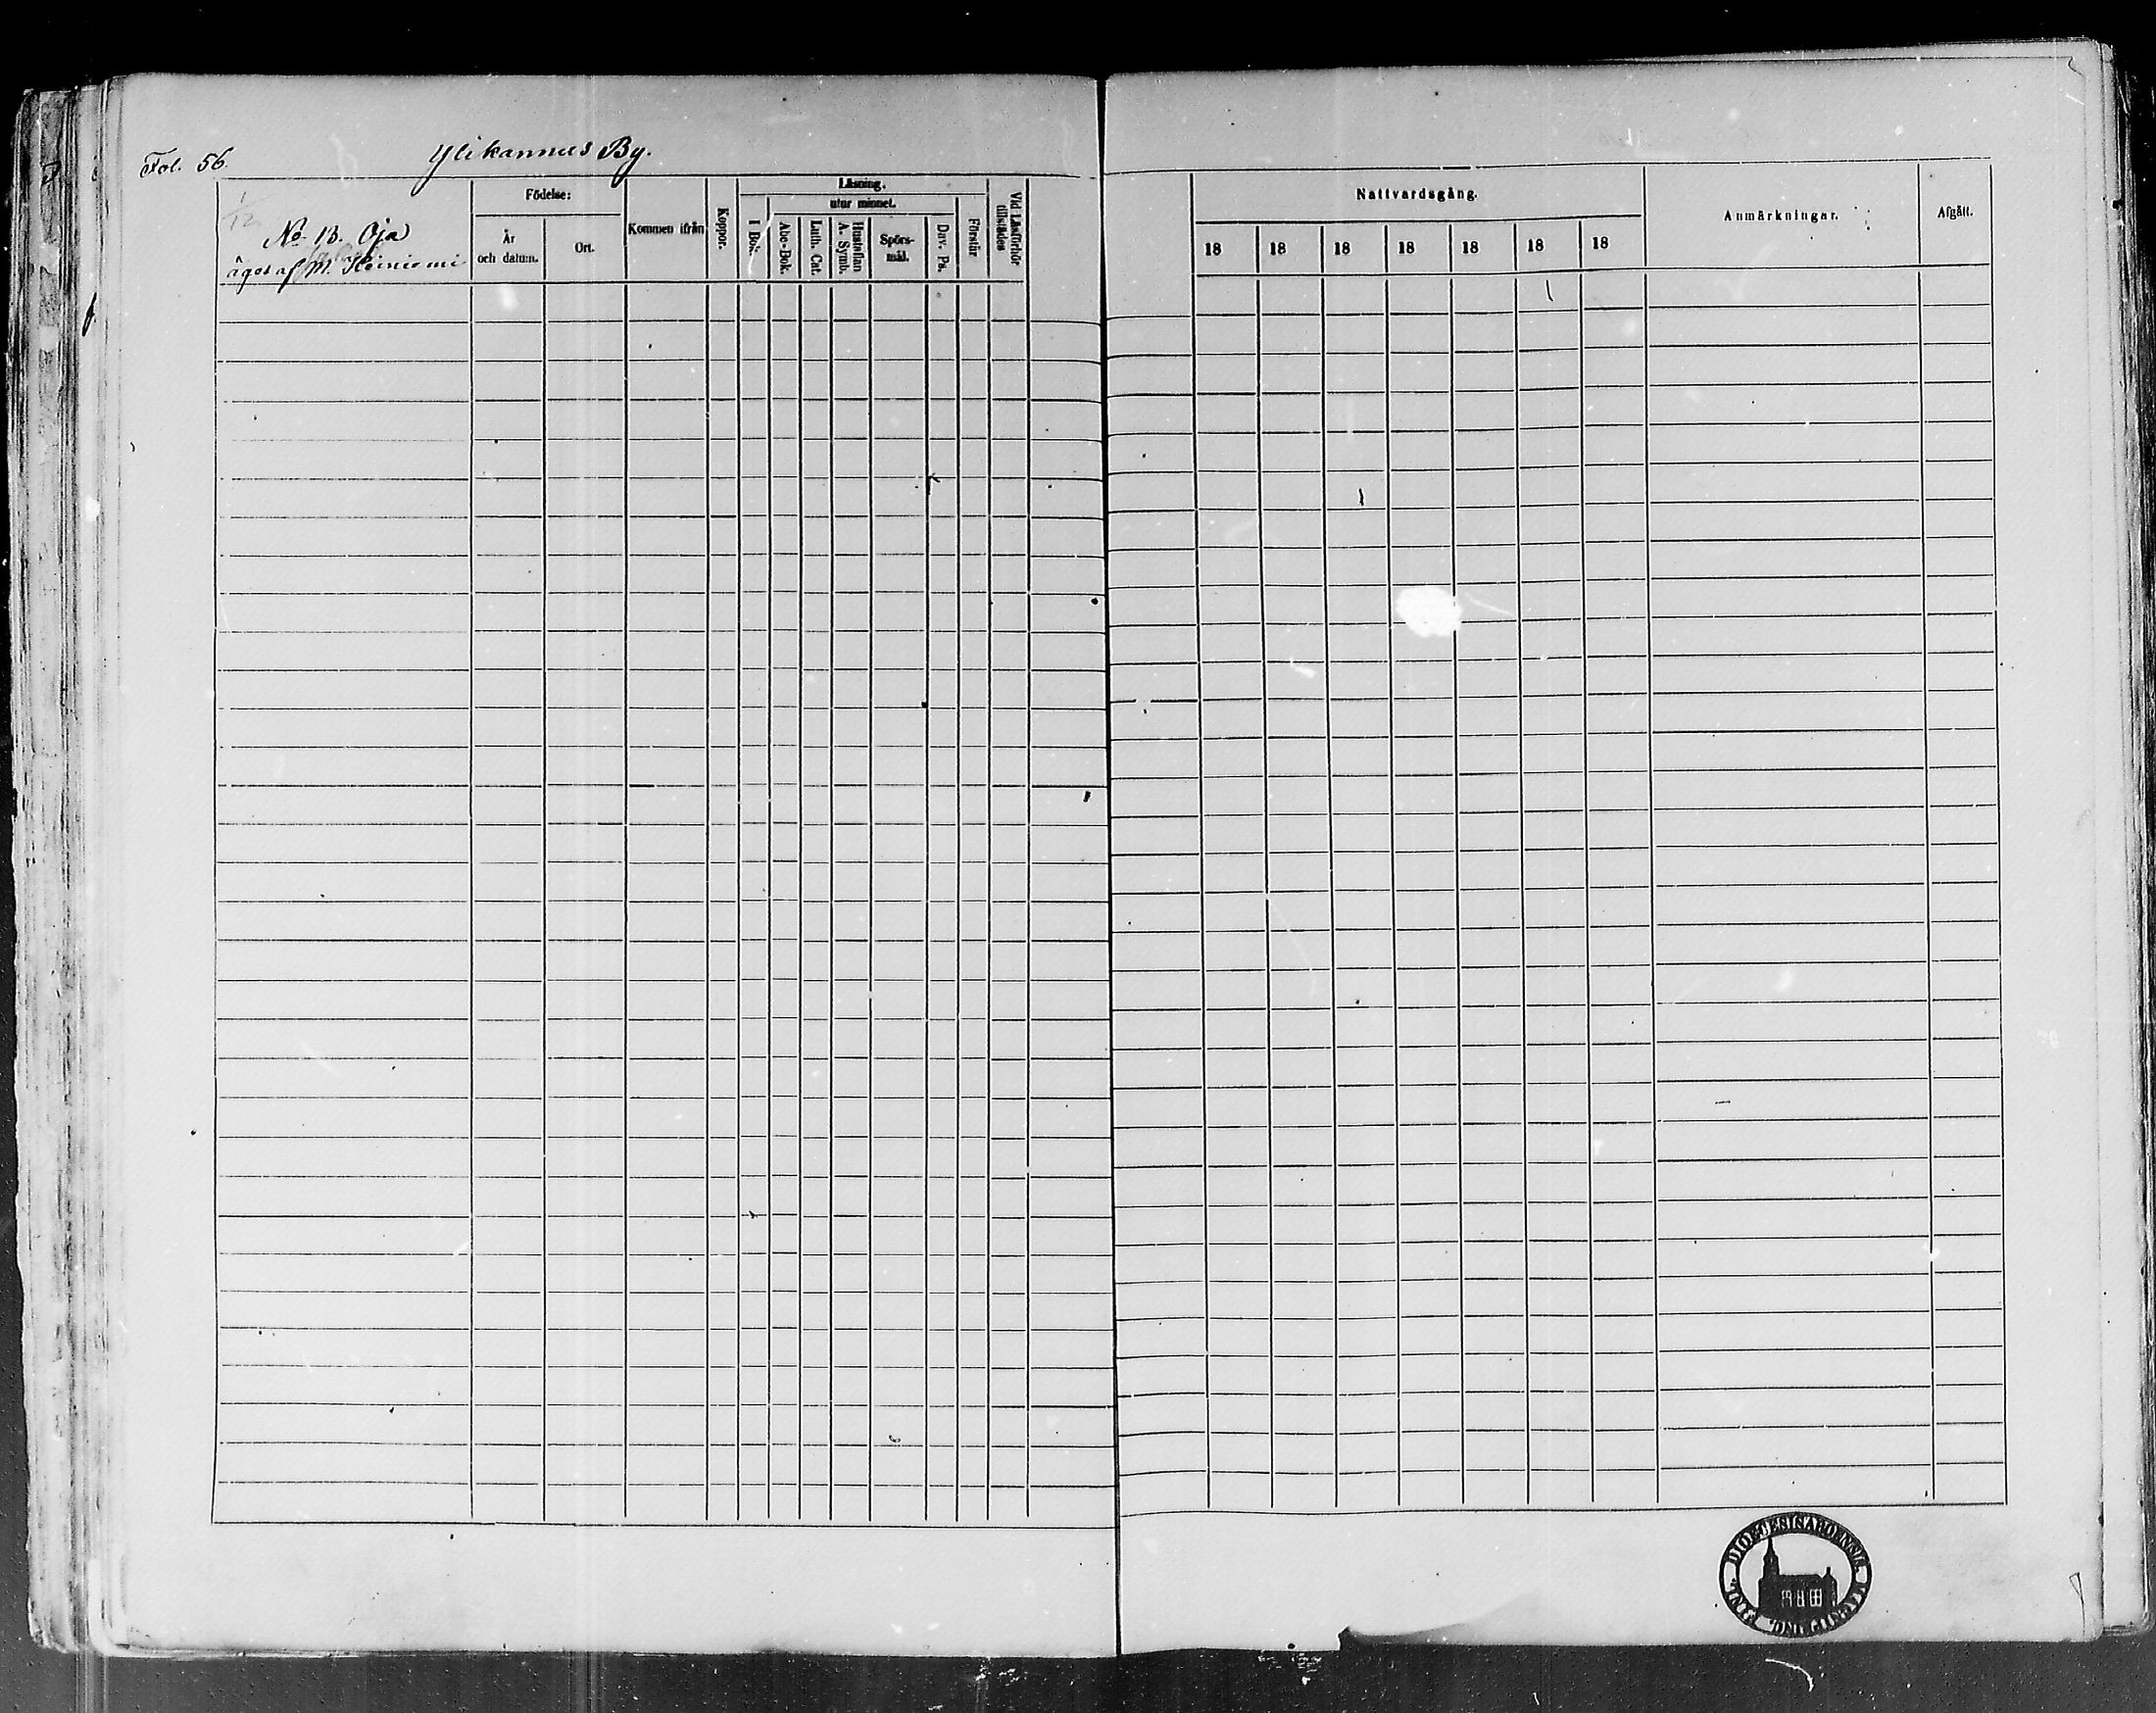 Fol. 56.
Ylikannus By.
1/12
No 13. Oja
äges af M. Heiniemi
Födelse:
År
och datum.
Ort.
Kommen ifrån
Koppor.
Läsning.
I Bok.
utur minnet.
Abc-Bok.
Luth. Cat.
Hustaflan
A. Symb.
Spörs-
mål.
Dav. Ps.
Förstår
Vid Läsförhör
tillstädes
Nattvardsgång.
18 18 18 18 18 18 18
Anmärkningar.
Afgått.